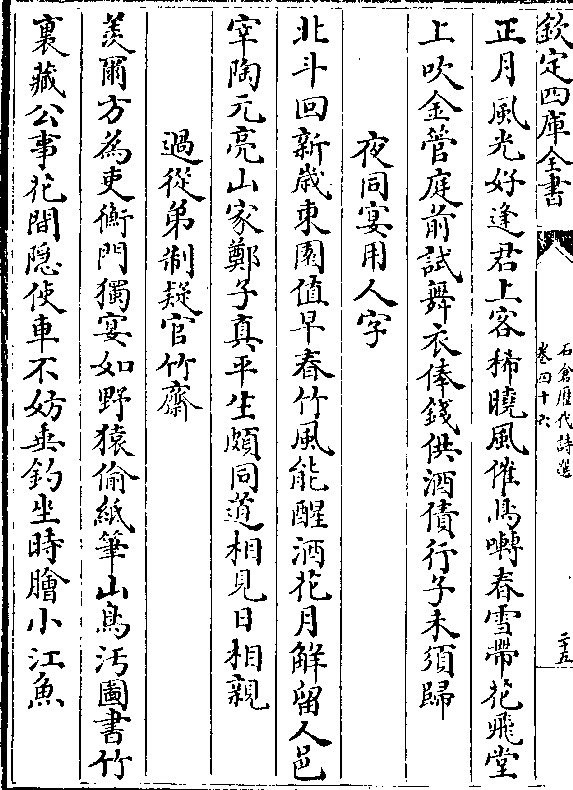 欽定四庫全書
石倉歷代詩選
卷四十六
二十五
正月風光好逢君上客稀曉風催鳥囀春雪帶花飛堂
上吹金管庭前試舞衣俸錢供酒債行子未須歸
夜同宴用人字
北斗回新歳東園值早春竹風能醒酒花月解留人邑
宰陶元亮山家鄭子真平生頗同道相見日相親
過從弟制疑官竹齋
羨爾方為吏衡門獨宴如野猿偷紙筆山鳥汚圖書竹
裏藏公事花間隠使車不妨垂釣坐時膾小江魚